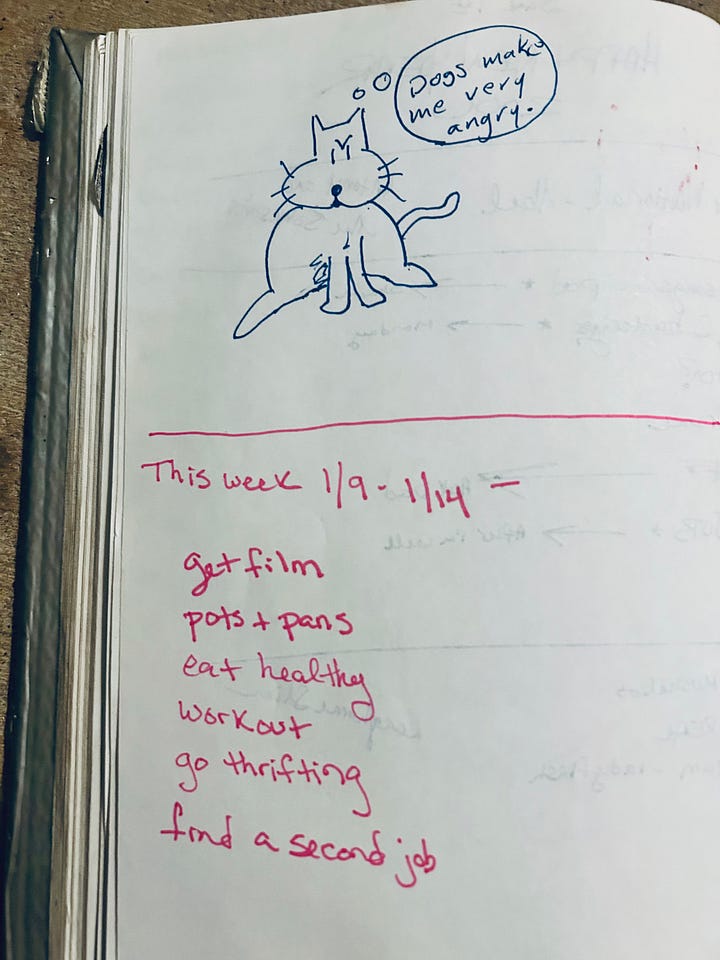 Dogs make
me very
angry.
This week 1/9 - 1/14 —
get film
pots + pans
eat healthy
workout
go thrifting
find a second job